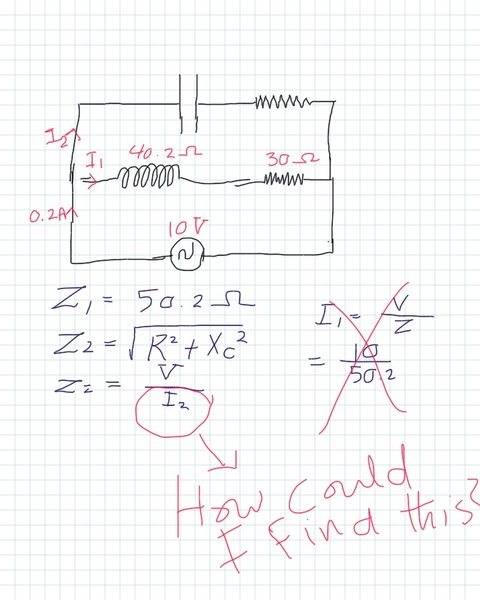 I₂
I₁ 40.2Ω 30Ω
0.2A
10V
Z₁ = 50.2Ω
Z₂ = √R² + Xc²
Z₂ = V/I₂
I₁ = V/Z
= 10/50.2
How could
I find this?